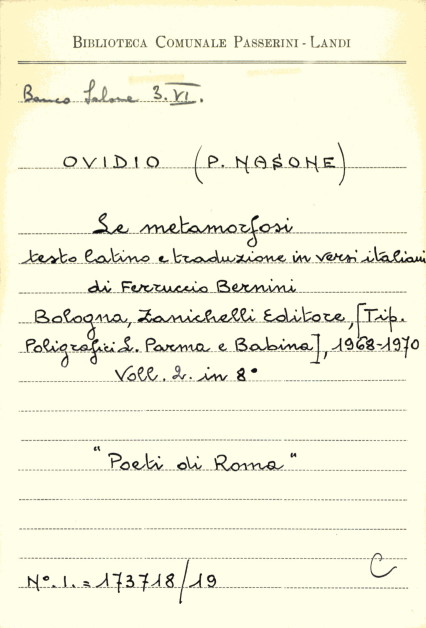 BIBLIOTECA COMUNALE PASSERINI - LANDI
Banco Salone 3.VI.
OVIDIO (P. NASONE)
Le metamorfosi
testo latino e traduzione in versi italiani
di Ferruccio Bernini
Bologna, Zanichelli Editore, [Tip.
Poligrafici L. Parma e Babina], 1968-1970
Voll. 2. in 8°
"Poeti di Roma"
C
N°. I. = 173718/19